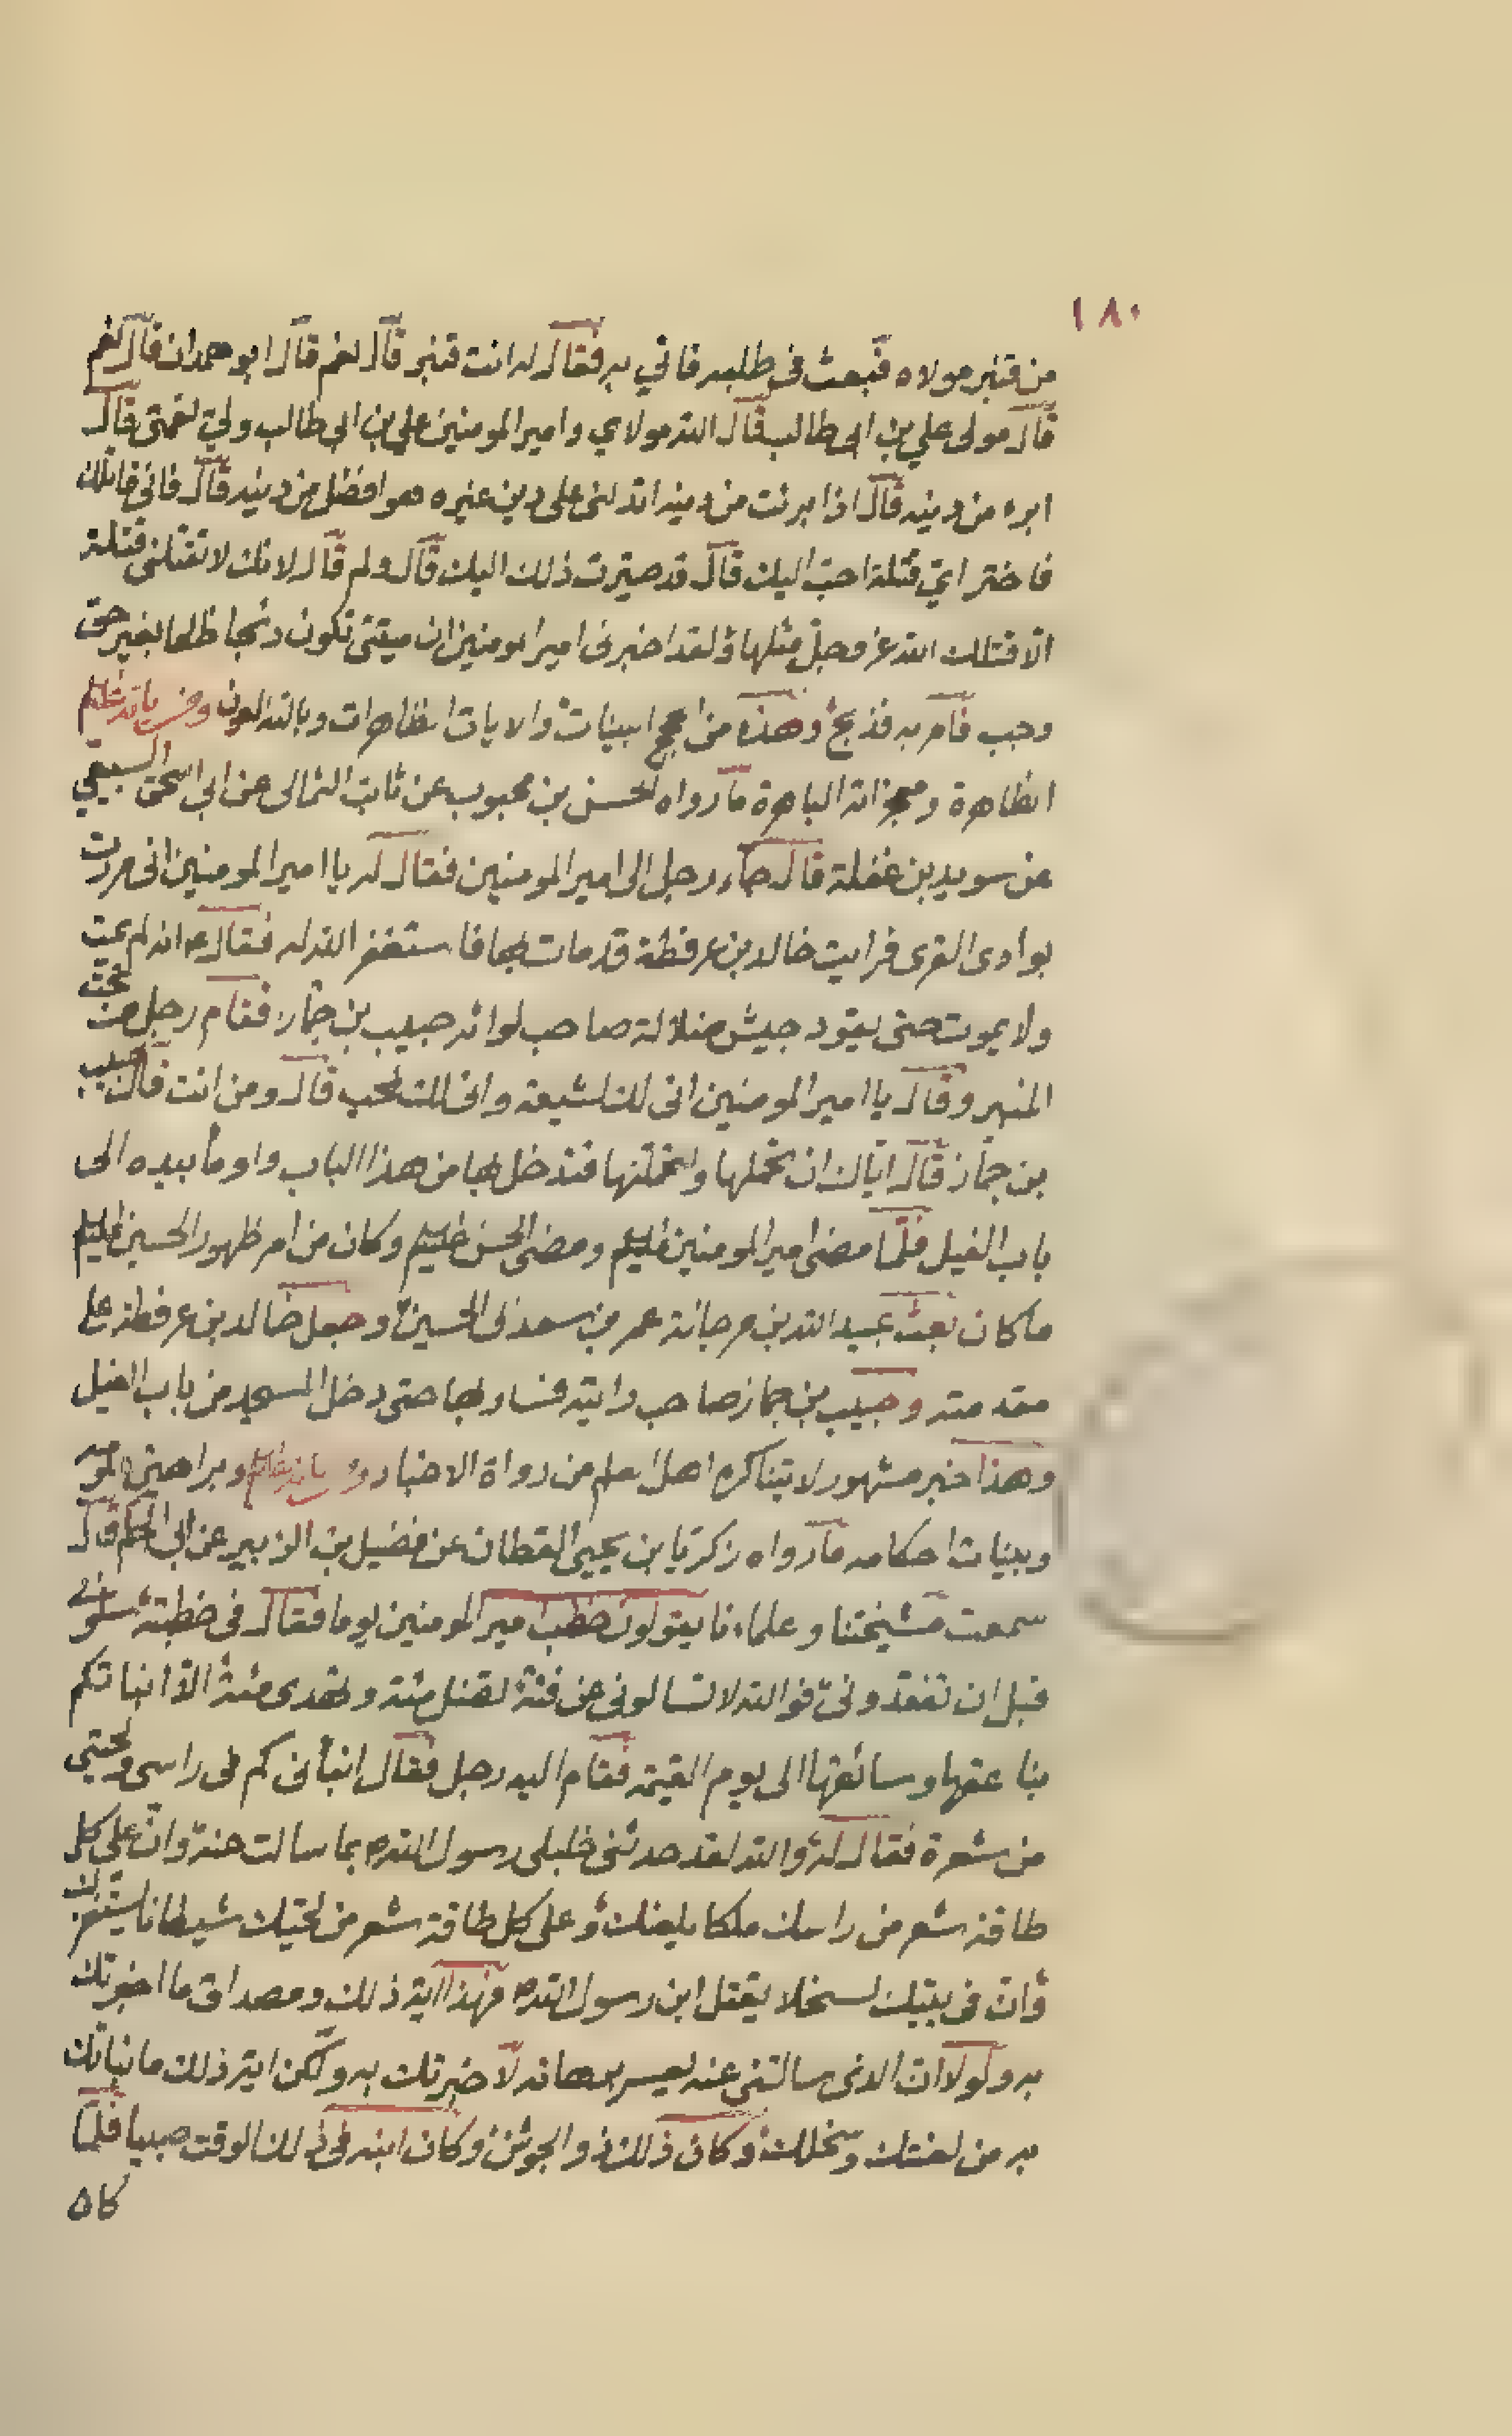 ١٨٠
من قنبر مولاه فبعث في طلبه فاتي به فقال له انت قنبر قال نعم قال ابو همدان قال نعم
قال مولى علي بن ابي طالب قال الله مولاي وامير المومنين علي بن ابي طالب ولي نعمتي قال
ابرء من دينه قال اذا برئت من دينه تدلني على دين غيره هو افضل من دينه قال فاني قاتلك
فاختر اي قتلة احب اليك قال قد صيرت ذلك اليك قال ولم قال لانك لا تقتلني قتلة
الا قتلك الله عز وجل مثلها ولقد اخبرني امير المومنين ان ميتتي تكون ذبحا ظلما بغير حق
وجب فامر به فذبح وهذه من البينات والايات الظاهرات وبالله العون ومن
الظاهرة ومعجزاته الباهرة ما رواه الحسن بن محبوب عن ثابت الثمالي عن ابي اسحق السبيعي
عن سويد بن غفلة قال جاء رجل الى امير المومنين فقال له يا امير المومنين اني مررت
بوادى القرى فرايت خالد بن عرفطة قد مات بها فاستغفر الله له فقال ع انه لم يمت
ولا يموت حتى يقود جيش ضلالة صاحب لوائه حبيب بن جماز فقام رجل من تحت
المنبر وقال يا امير المومنين اني لك لشيعة واني لك لمحب قال ومن انت قال انا حبيب
بن جماز قال اياك ان تحملها ولتحملنها فتدخل بها من هذا الباب واومأ بيده الى
باب الفيل فلما مضى امير المومنين عليه السلم ومضى الحسن عليه السلم وكان من امر ظهور الحسين عليه السلم
ما كان بعث عبيد الله بن مرجانة عمر بن سعد الى الحسين وجعل خالد بن عرفطة على
مقدمته وحبيب بن جماز صاحب رايته فسار بها حتى دخل المسجد من باب الفيل
وهذا خبر مشهور لا يتناكره اهل العلم من رواة الاخبار وبراهين
وبينات احكامه ما رواه زكريا بن يحيى القطان عن فضيل بن الزبير عن ابي الحكم قال
سمعت مشيختنا وعلماءنا يقولون خطب امير المومنين يوما فقال في خطبته سلوني
قبل ان تفقدوني فوالله لا تسالوني عن فئة تضل مئة وتهدى مئة الا انباتكم
بناعقها وسائقها الى يوم القيمة فقام اليه رجل فقال انبأني كم في راسي ولحيتي
من شعرة فقال له والله لقد حدثني خليلي رسول الله ص بما سالت عنه وان على كل
طاقة شعر من راسك ملكا يلعنك وعلى كل طاقة شعر من لحيتك شيطانا يستفزك
وان في بيتك لسخلا يقتل ابن رسول الله ص فهذا اية ذلك ومصداق ما اخبرتك
به ولولا ان الذي سالتني عنه يعسر برهانه لاخبرتك به ولكن اية ذلك ما نباتك
به من لعنتك وسخلك وكان ذلك ذو الجوشن وكان ابنه في ذلك الوقت صبيا فلما
كان